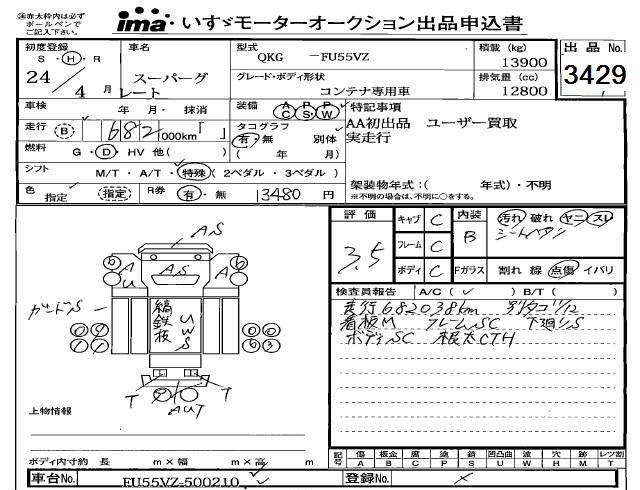 ※赤太枠内は必ず
ボールペンで
ご記入下さい。
ima いすゞモーターオークション出品申込書
初度登録
S・H・R
24/4月
車名
スーパーグレート
型式
QKG -FU55VZ
グレード・ボディ形状
コンテナ専用車
積載(kg)
13900
排気量(cc)
12800
出品No.
3429
車検 年 月・抹消
装備 AC PS PW
走行 B 682000km「 」
タコグラフ
有・無 別体
( 年 月)
燃料 G・D・HV 他( )
シフト M/T・A/T・特殊(2ペダル・3ペダル)
色 指定 指定
R券 有・無 13480円
特記事項
AA初出品 ユーザー買取
実走行
架装物年式:( 年式)・不明
※不明の場合は、不明に○をする。
評価 3.5
キャブ C
フレーム C
ボディ C
内装 B
汚れ 破れ ヤニ スレ
Fガラス 割れ 線 点傷 イバリ
検査員報告 A/C( ✓ ) B/T( )
走行682038km
看板M フレームSC 下廻りS
ボディSC 根太CTH
AS
AS
A
U
A
ガードS
縞鉄板
UWS
T
T
AUT
上物情報
ボディ内寸約 長 m×幅 m×高 m
記号 傷A 板金B 腐C 塗P 錆S 凹凸曲U 波W 穴H 跡M レツ割T
車台No. FU55VZ-500210
登録No.